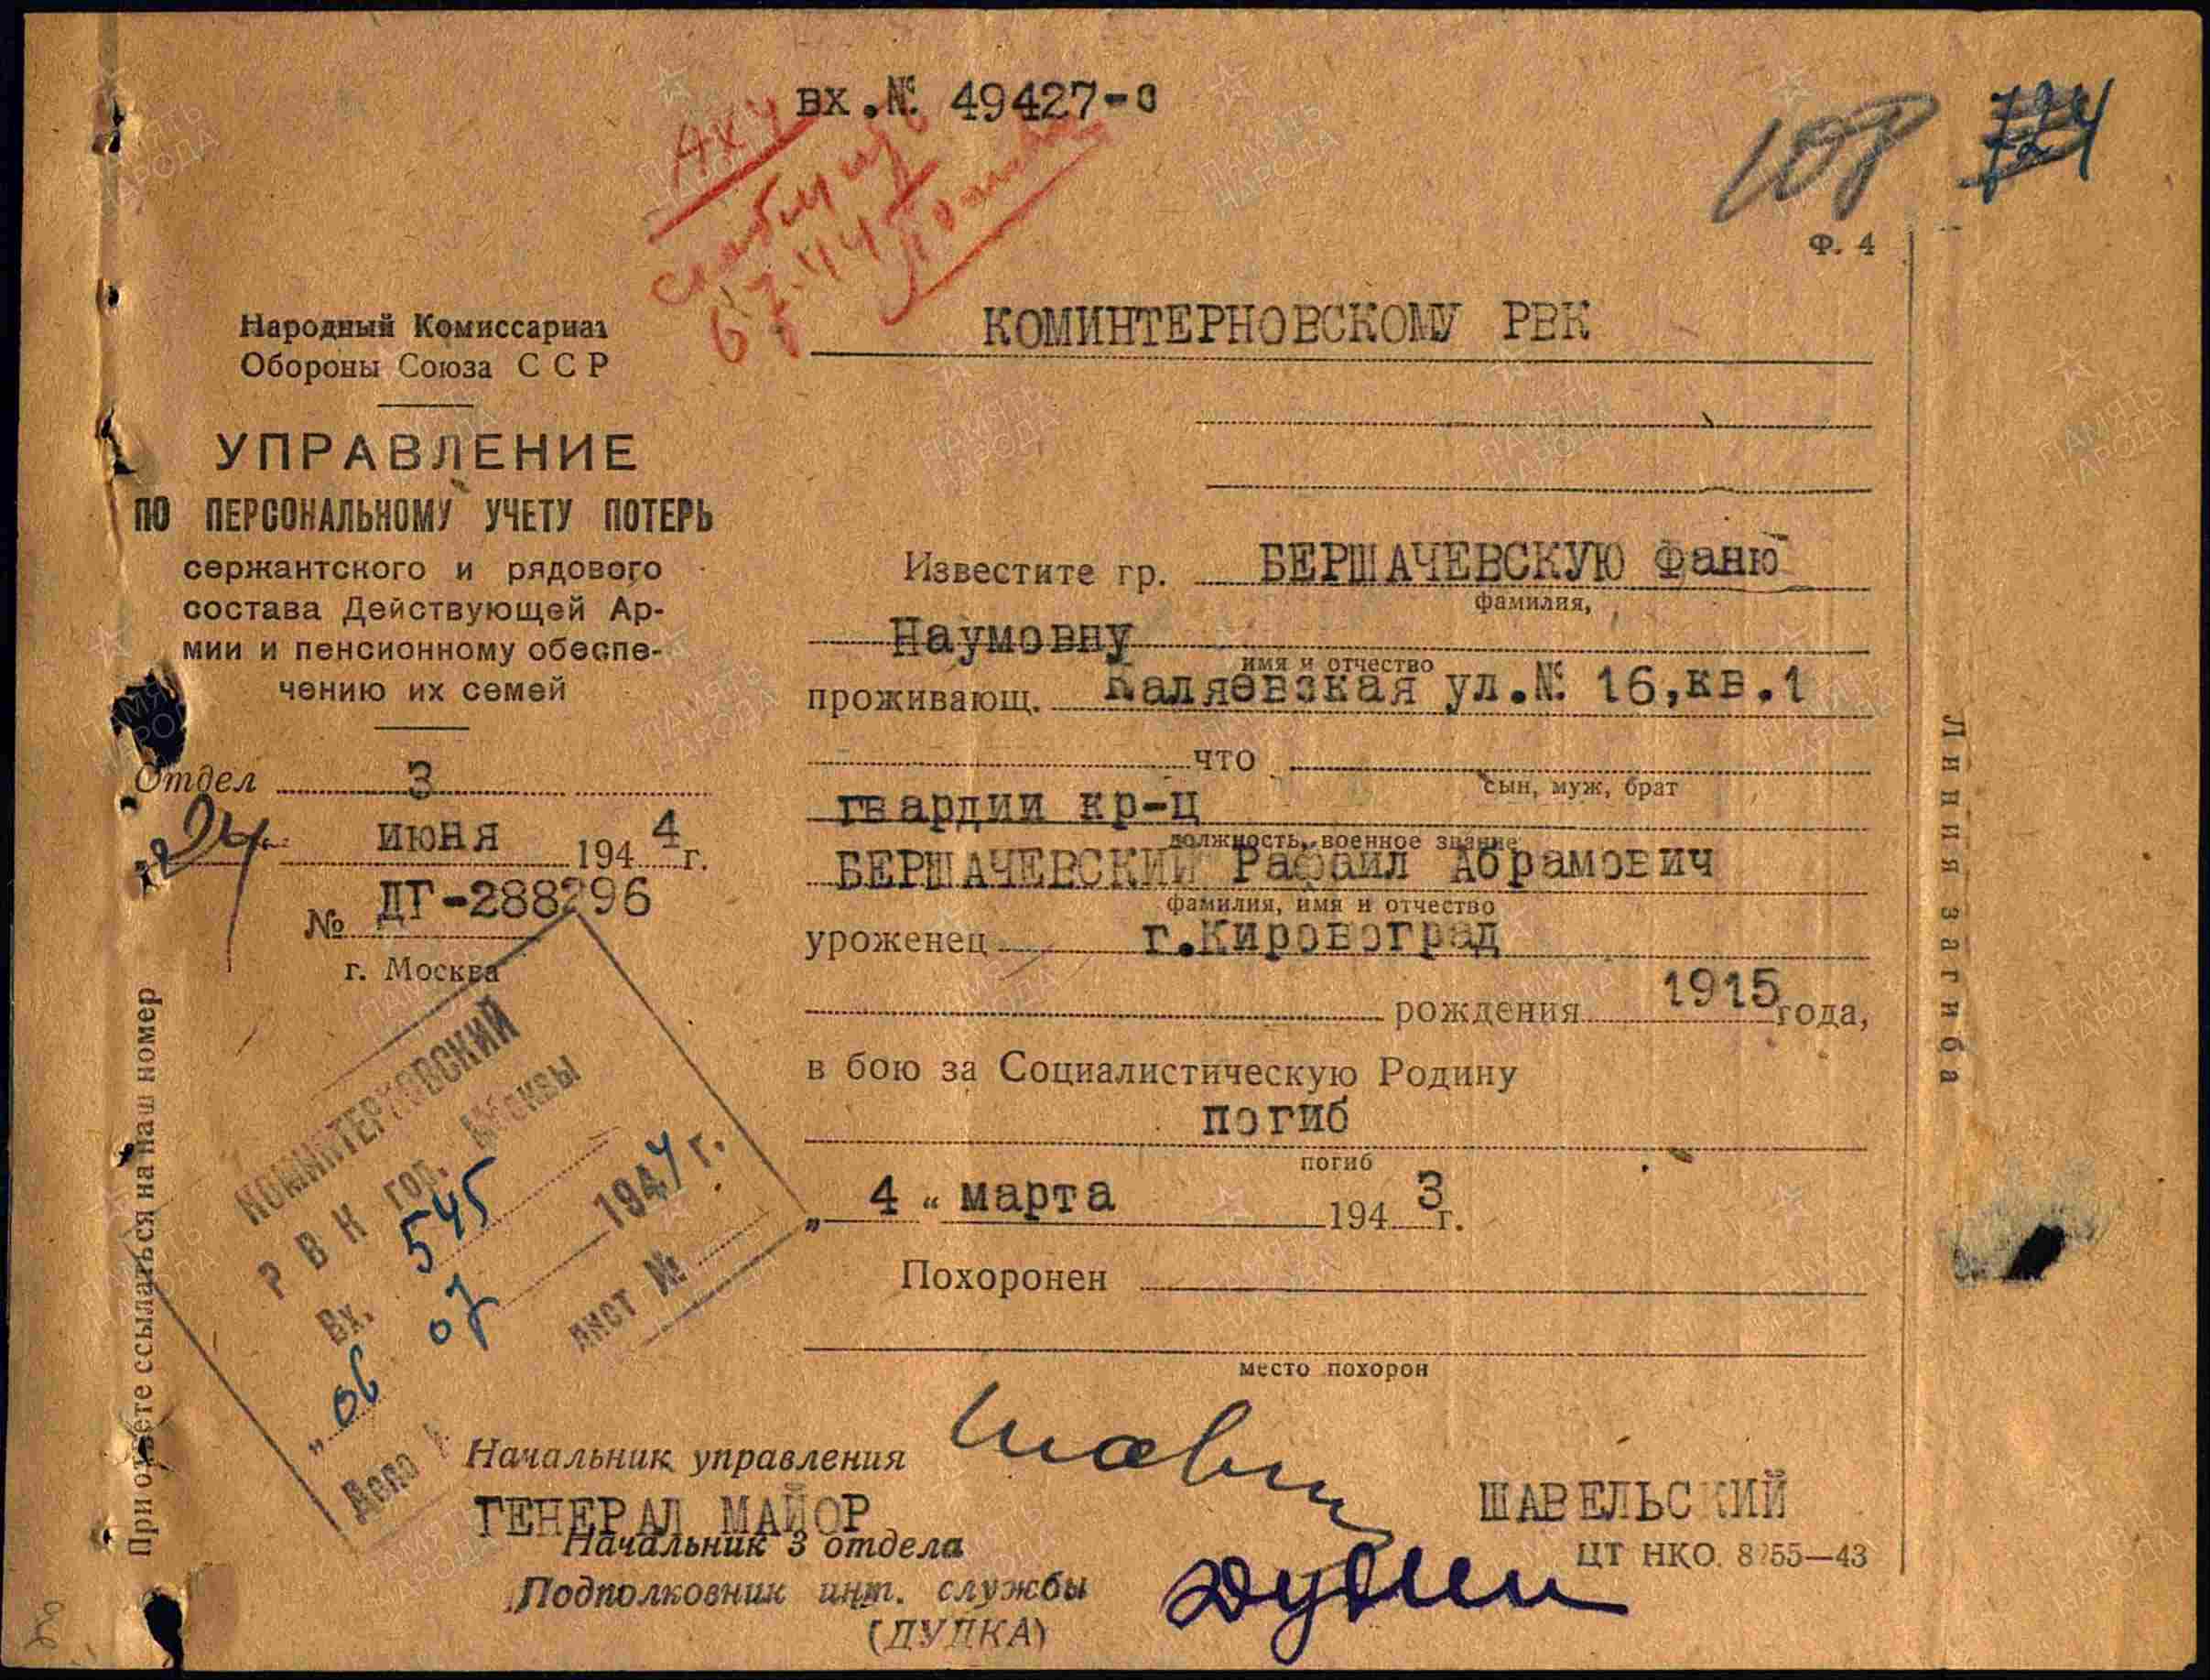 вх.№ 49427-с
АХУ
108
724
Ф. 4
Народный Комиссариат
Обороны Союза ССР
УПРАВЛЕНИЕ
ПО ПЕРСОНАЛЬНОМУ УЧЕТУ ПОТЕРЬ
сержантского и рядового
состава Действующей Ар-
мии и пенсионному обеспе-
чению их семей
Отдел 3
„24" июня 1944 г.
№ ДГ-288296
г. Москва
КОМИНТЕРНОВСКИЙ
РВК гор. Москвы
Вх. 545
„06 07 1944 г.
Дело № лист №
При ответе ссылаться на наш номер
КОМИНТЕРНОВСКОМУ РВК
Известите гр. БЕРШАЧЕВСКУЮ Фаню
фамилия,
Наумовну
имя и отчество
проживающ. Каляевская ул.№ 16,кв.1
что
сын, муж, брат
гвардии кр-ц
должность, военное звание
БЕРШАЧЕВСКИЙ Рафаил Абрамович
фамилия, имя и отчество
уроженец г.Кировоград
рождения 1915 года,
в бою за Социалистическую Родину
погиб
погиб
„ 4 “ марта 1943 г.
Похоронен
место похорон
Начальник управления
ГЕНЕРАЛ МАЙОР ШАВЕЛЬСКИЙ
Начальник 3 отдела
Подполковник инт. службы
(ДУДКА)
ЦТ НКО. 8255—43
Линия загиба
ПАМЯТЬ НАРОДА